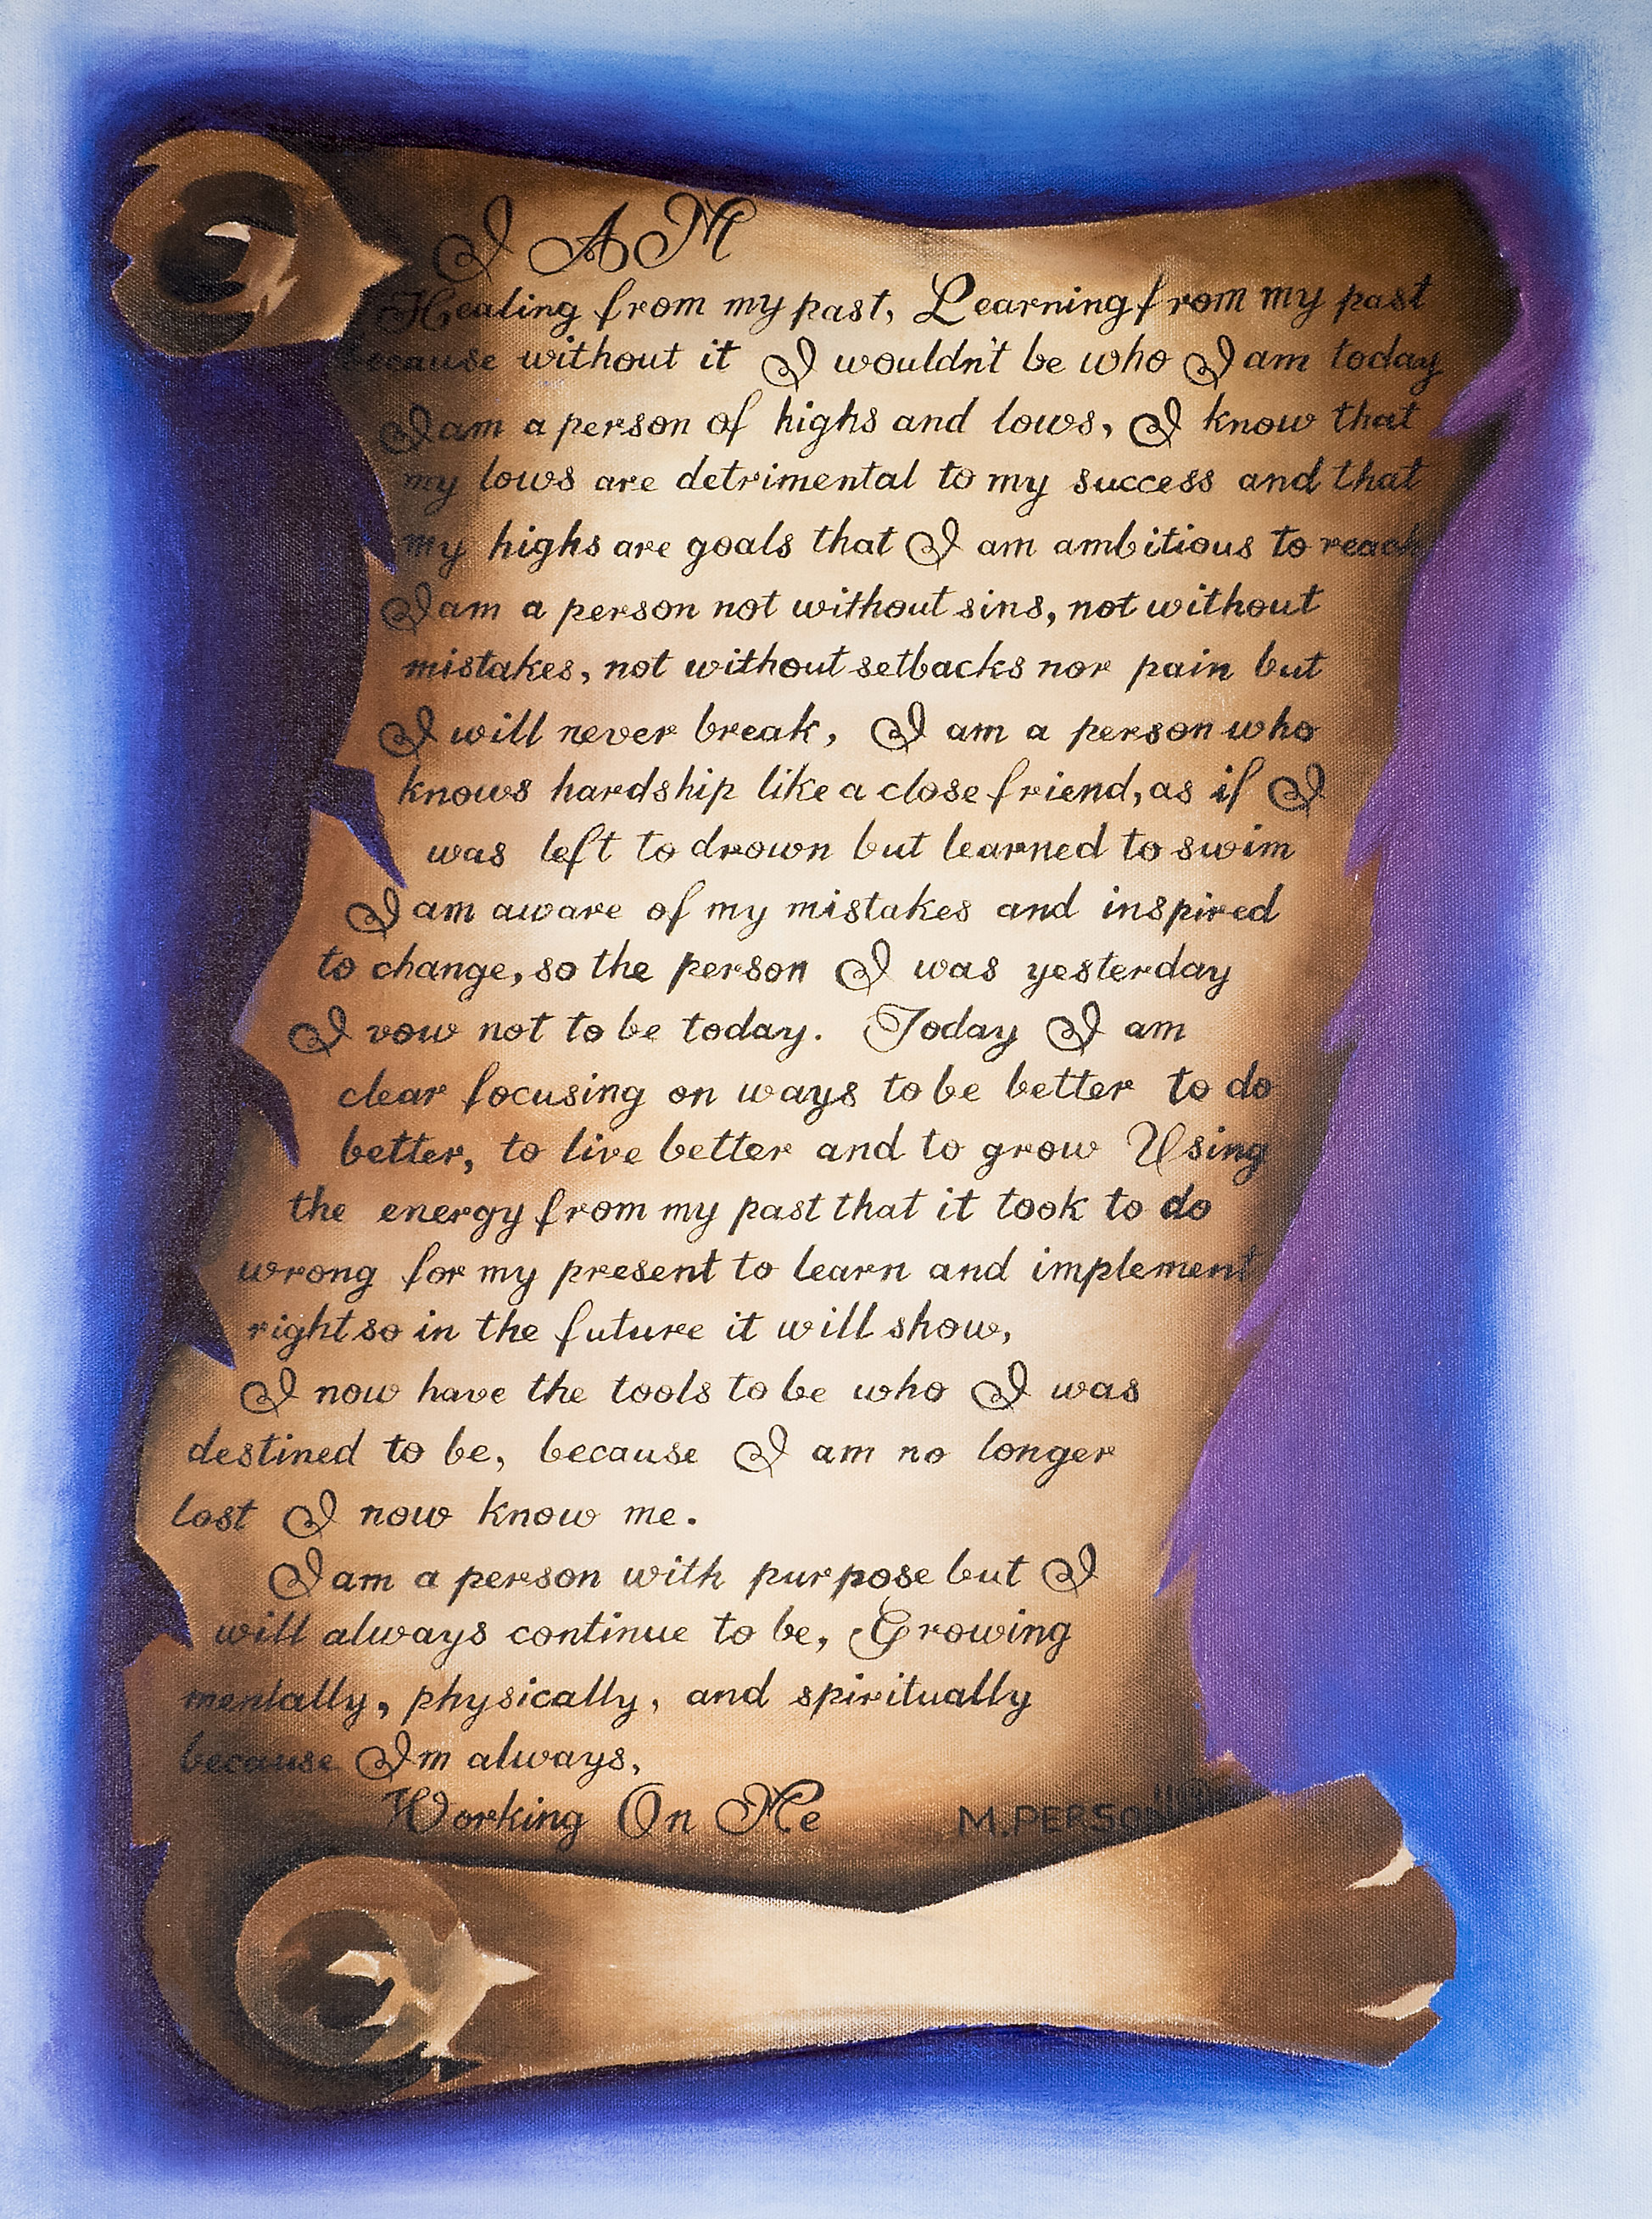 I AM
Healing from my past, Learning from my past
because without it I wouldn't be who I am today
I am a person of highs and lows, I know that
my lows are detrimental to my success and that
my highs are goals that I am ambitious to reach
I am a person not without sins, not without
mistakes, not without setbacks nor pain but
I will never break, I am a person who
knows hardship like a close friend, as if I
was left to drown but learned to swim
I am aware of my mistakes and inspired
to change, so the person I was yesterday
I vow not to be today. Today I am
clear focusing on ways to be better to do
better, to live better and to grow Using
the energy from my past that it took to do
wrong for my present to learn and implement
right so in the future it will show,
I now have the tools to be who I was
destined to be, because I am no longer
lost I now know me.
I am a person with purpose but I
will always continue to be, Growing
mentally, physically, and spiritually
because Im always,
Working On Me
M. PERSON